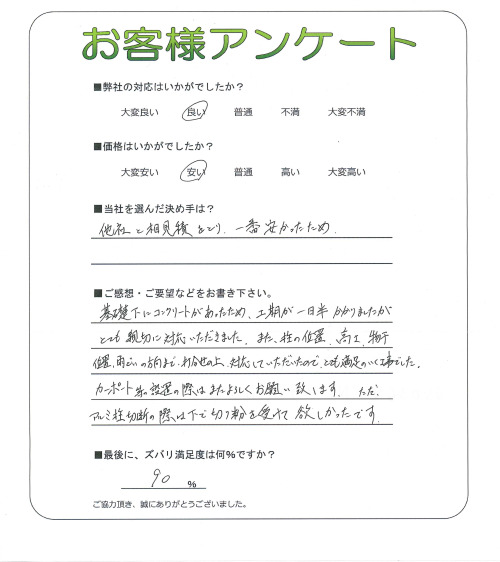 お客様アンケート
■弊社の対応はいかがでしたか？
大変良い 良い 普通 不満 大変不満
■価格はいかがでしたか？
大変安い 安い 普通 高い 大変高い
■当社を選んだ決め手は？
他社と相見積をとり、一番安かったため.
■ご感想・ご要望などをお書き下さい。
基礎下にコンクリートがあったため、工期が一日半かかりましたが
とても親切に対応いただきました。また、柱の位置、高さ、物干
位置、雨どいの方向まで、打合せの上、対応していただいたので、とても満足のいく工事でした。
カーポート等設置の際はまたよろしくお願い致します。ただ、
アルミ柱切断の際は下で切り粉を受けて欲しかったです。
■最後に、ズバリ満足度は何％ですか？
90 ％
ご協力頂き、誠にありがとうございました。